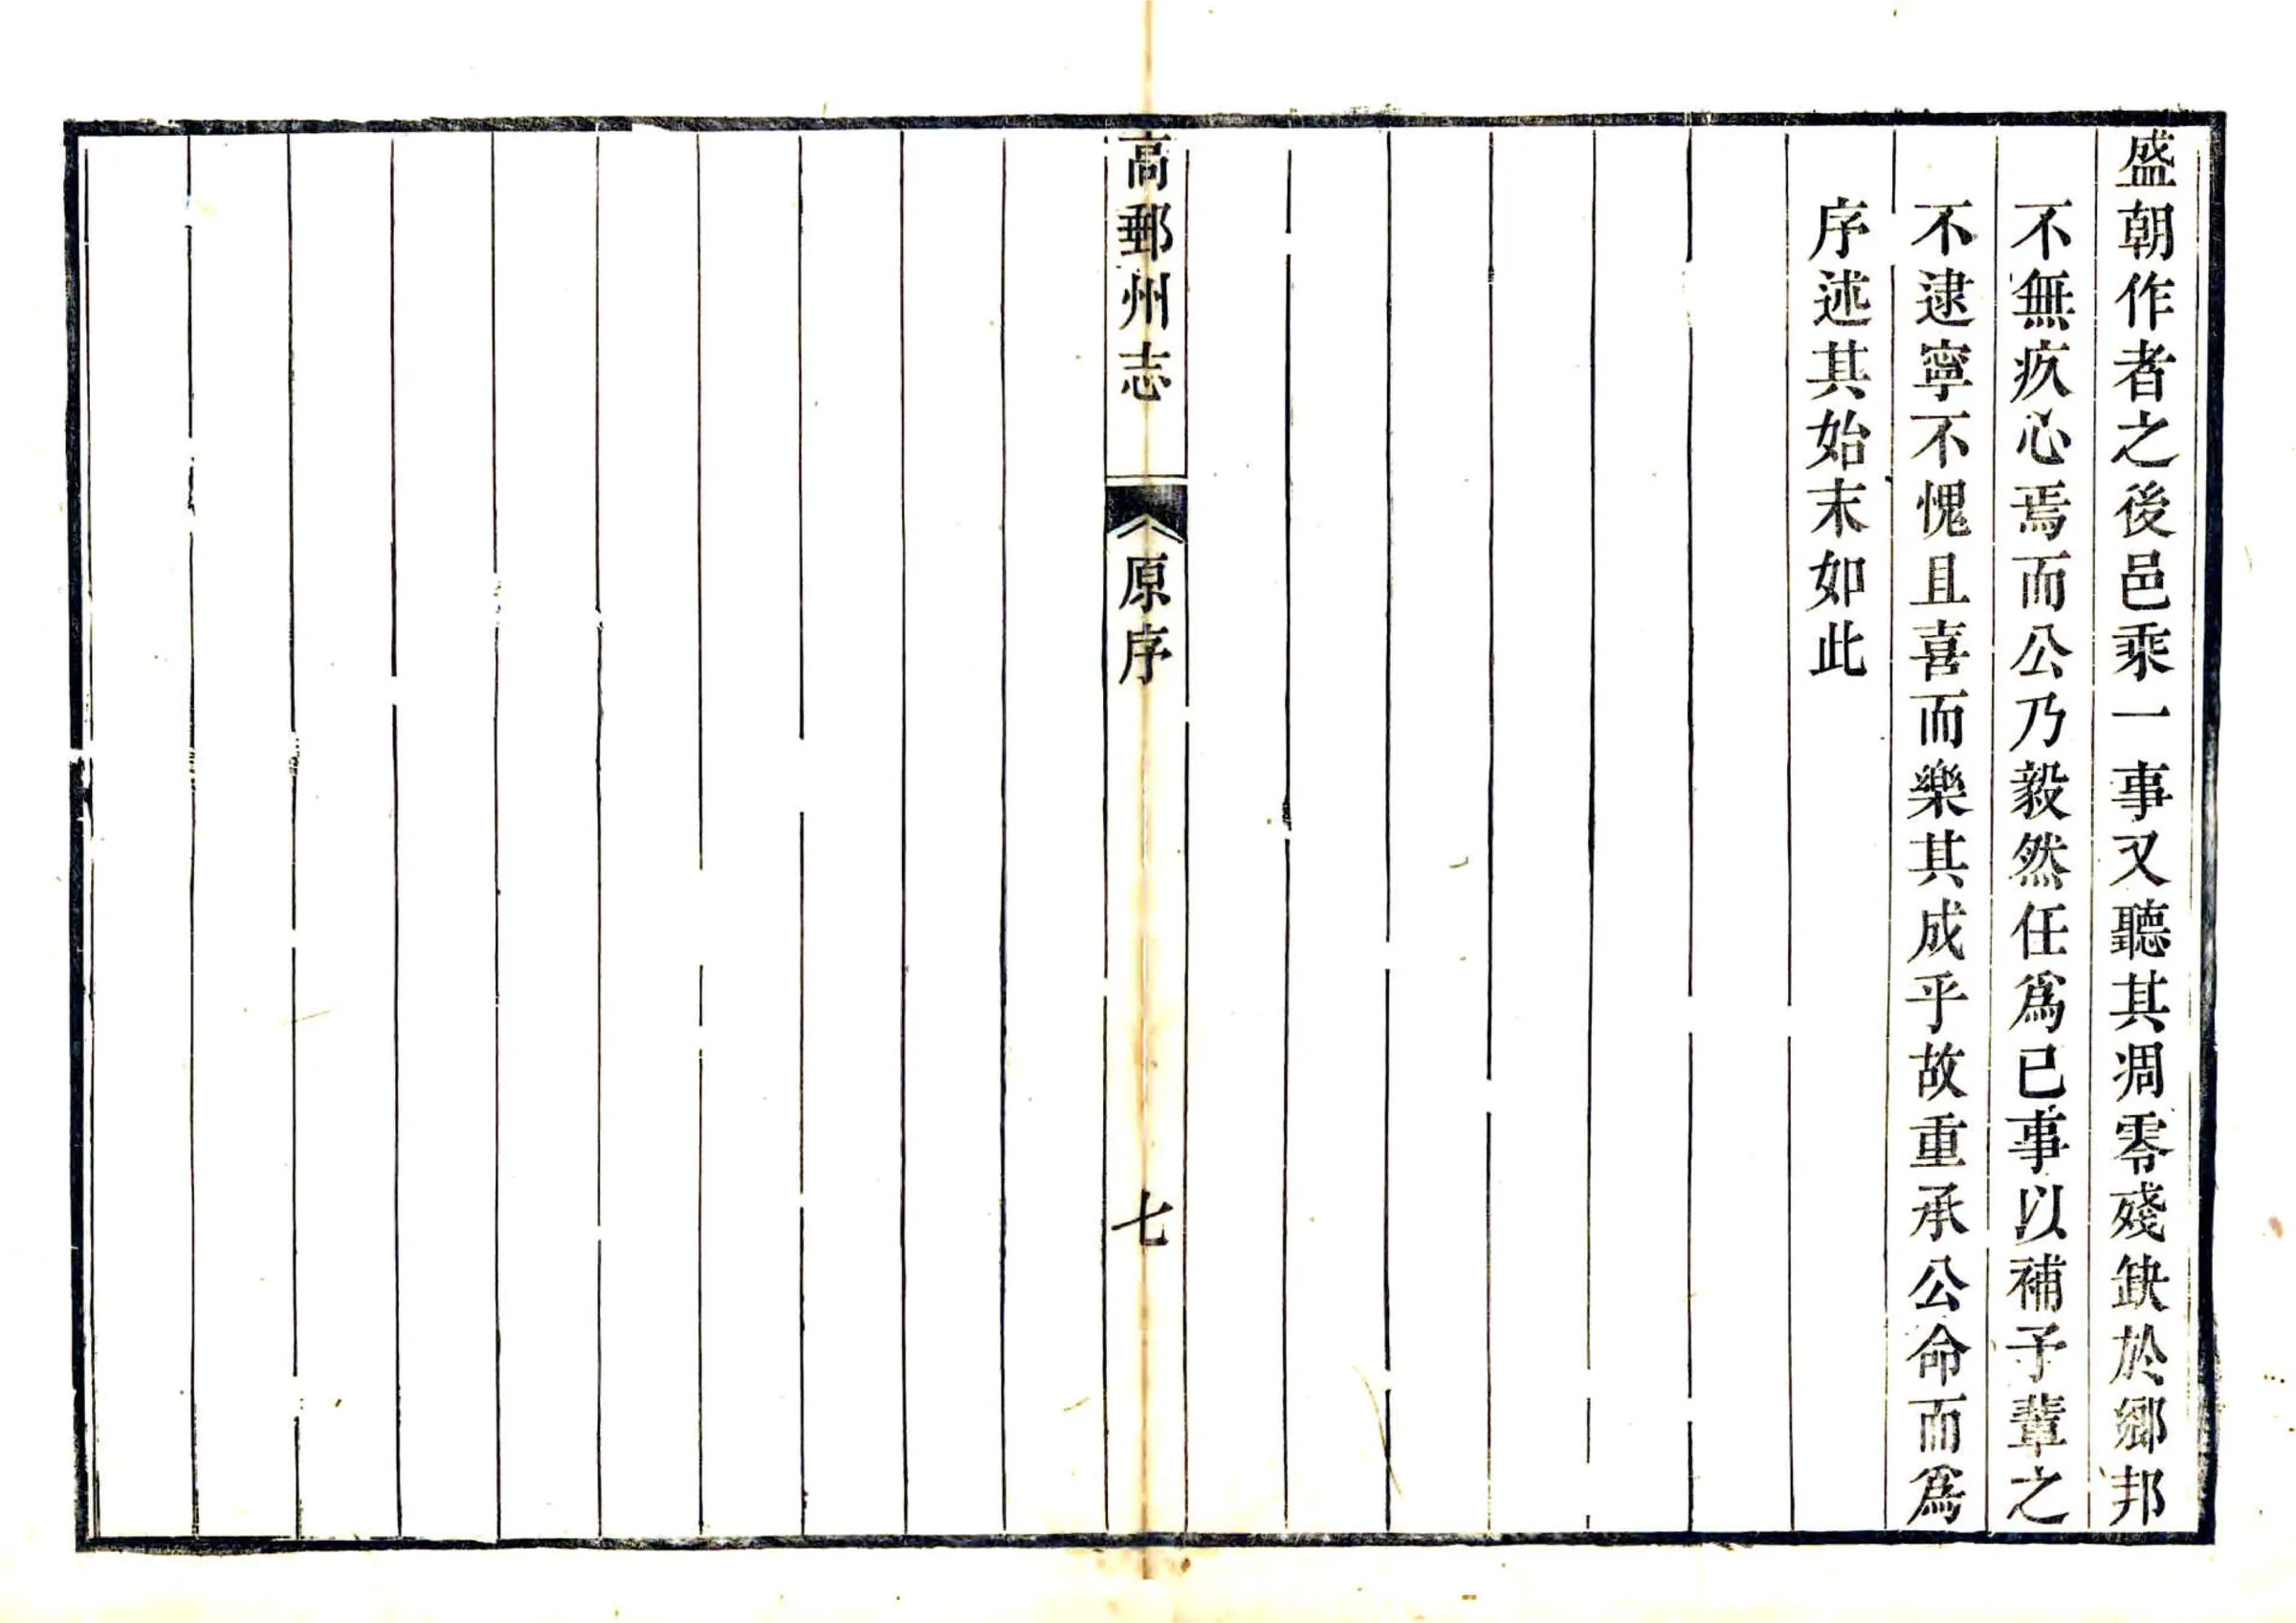 盛朝作者之後邑乘一事又聽其凋零殘缺於鄉邦
不無疚心焉而公乃毅然任爲已事以補予輩之
不逮寧不愧且喜而樂其成乎故重承公命而爲
序述其始末如此
高郵州志
原序
七